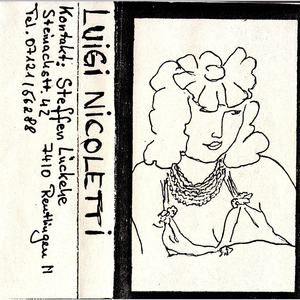 LUIGI NICOLETTI
Kontakt: Steffen Lückehe
Steinachstr 42
7410 Reutlingen 11
Tel. 07121/66288